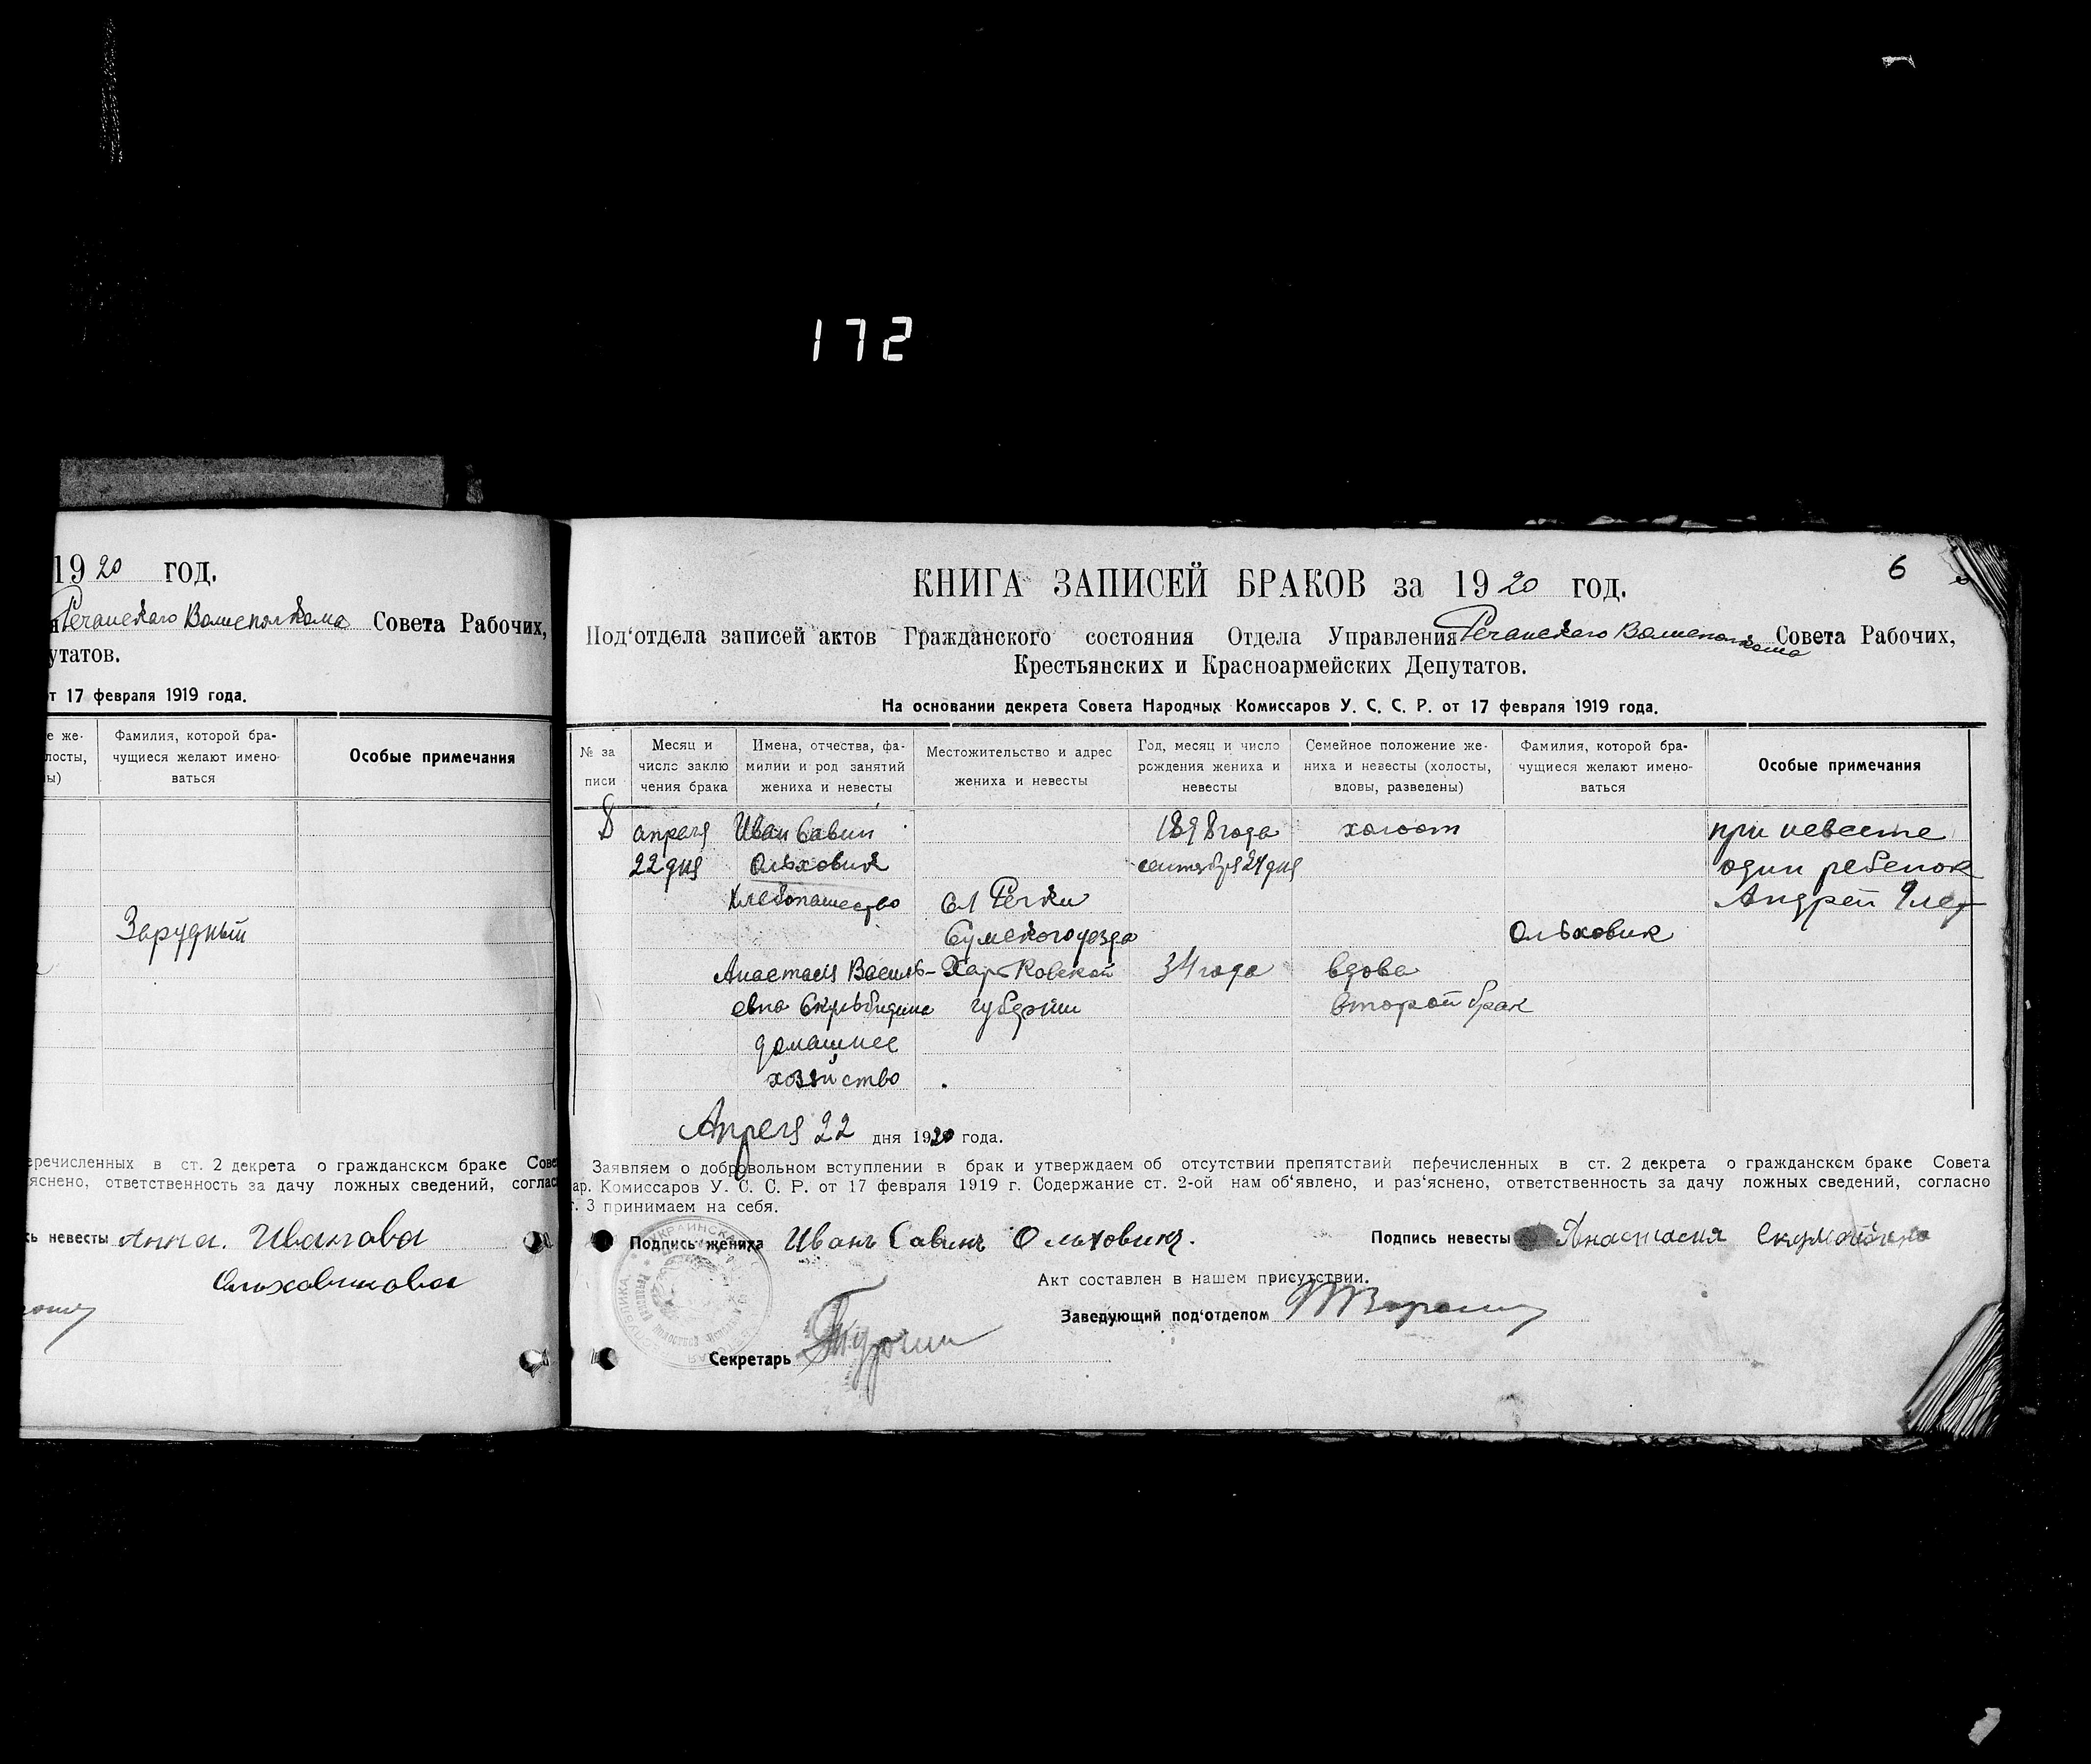 172
1920 год.
Речанскаго Волисполкома Совета Рабочих,
утатов.
от 17 февраля 1919 года.
е же-
лосты,
ы)
Фамилия, которой бра-
чущиеся желают имено-
ваться
Особые примечания
Зарудный
еречисленных в ст. 2 декрета о гражданском браке Сове
яснено, ответственность за дачу ложных сведений, соглас
ь невесты Анна. Иванова
Ольховикова
6
КНИГА ЗАПИСЕЙ БРАКОВ за 1920 год.
Под‘отдела записей актов Гражданского состояния Отдела Управления Речанскаго Волисполкома Совета Рабочих,
Крестьянских и Красноармейских Депутатов.
На основании декрета Совета Народных Комиссаров У. С. С. Р. от 17 февраля 1919 года.
№ за
писи
Месяц и
число заклю
чения брака
Имена, отчества, фа-
милии и род занятий
жениха и невесты
Местожительство и адрес
жениха и невесты
Год, месяц и число
рождения жениха и
невесты
Семейное положение же-
ниха и невесты (холосты,
вдовы, разведены)
Фамилия, которой бра-
чущиеся желают имено-
ваться
Особые примечания
8
апреля
22 дня
Иван Савин
Ольховик
Хлебопашество
Анастасия Василь-
евна
домашнее
хозяйство
сл Речки
Сумского уезда
Харьковской
губернии
1898 года
сентября 24 дня
34 года
холост
вдова
второй брак
Ольховик
при невесте
один ребенок
Андрей 9 лет
Апреля 22 дня 1920 года.
Заявляем о добровольном вступлении в брак и утверждаем об отсутствии препятствий перечисленных в ст. 2 декрета о гражданском браке Совета
ар. Комиссаров У. С. С. Р. от 17 февраля 1919 г. Содержание ст. 2-ой нам об‘явлено, и раз‘яснено, ответственность за дачу ложных сведений, согласно
т. 3 принимаем на себя.
Подпись жениха Иванъ Савинъ Ольховикъ.
Подпись невесты Анастасия
Акт составлен в нашем присутствии.
Заведующий под‘отделом
Секретарь